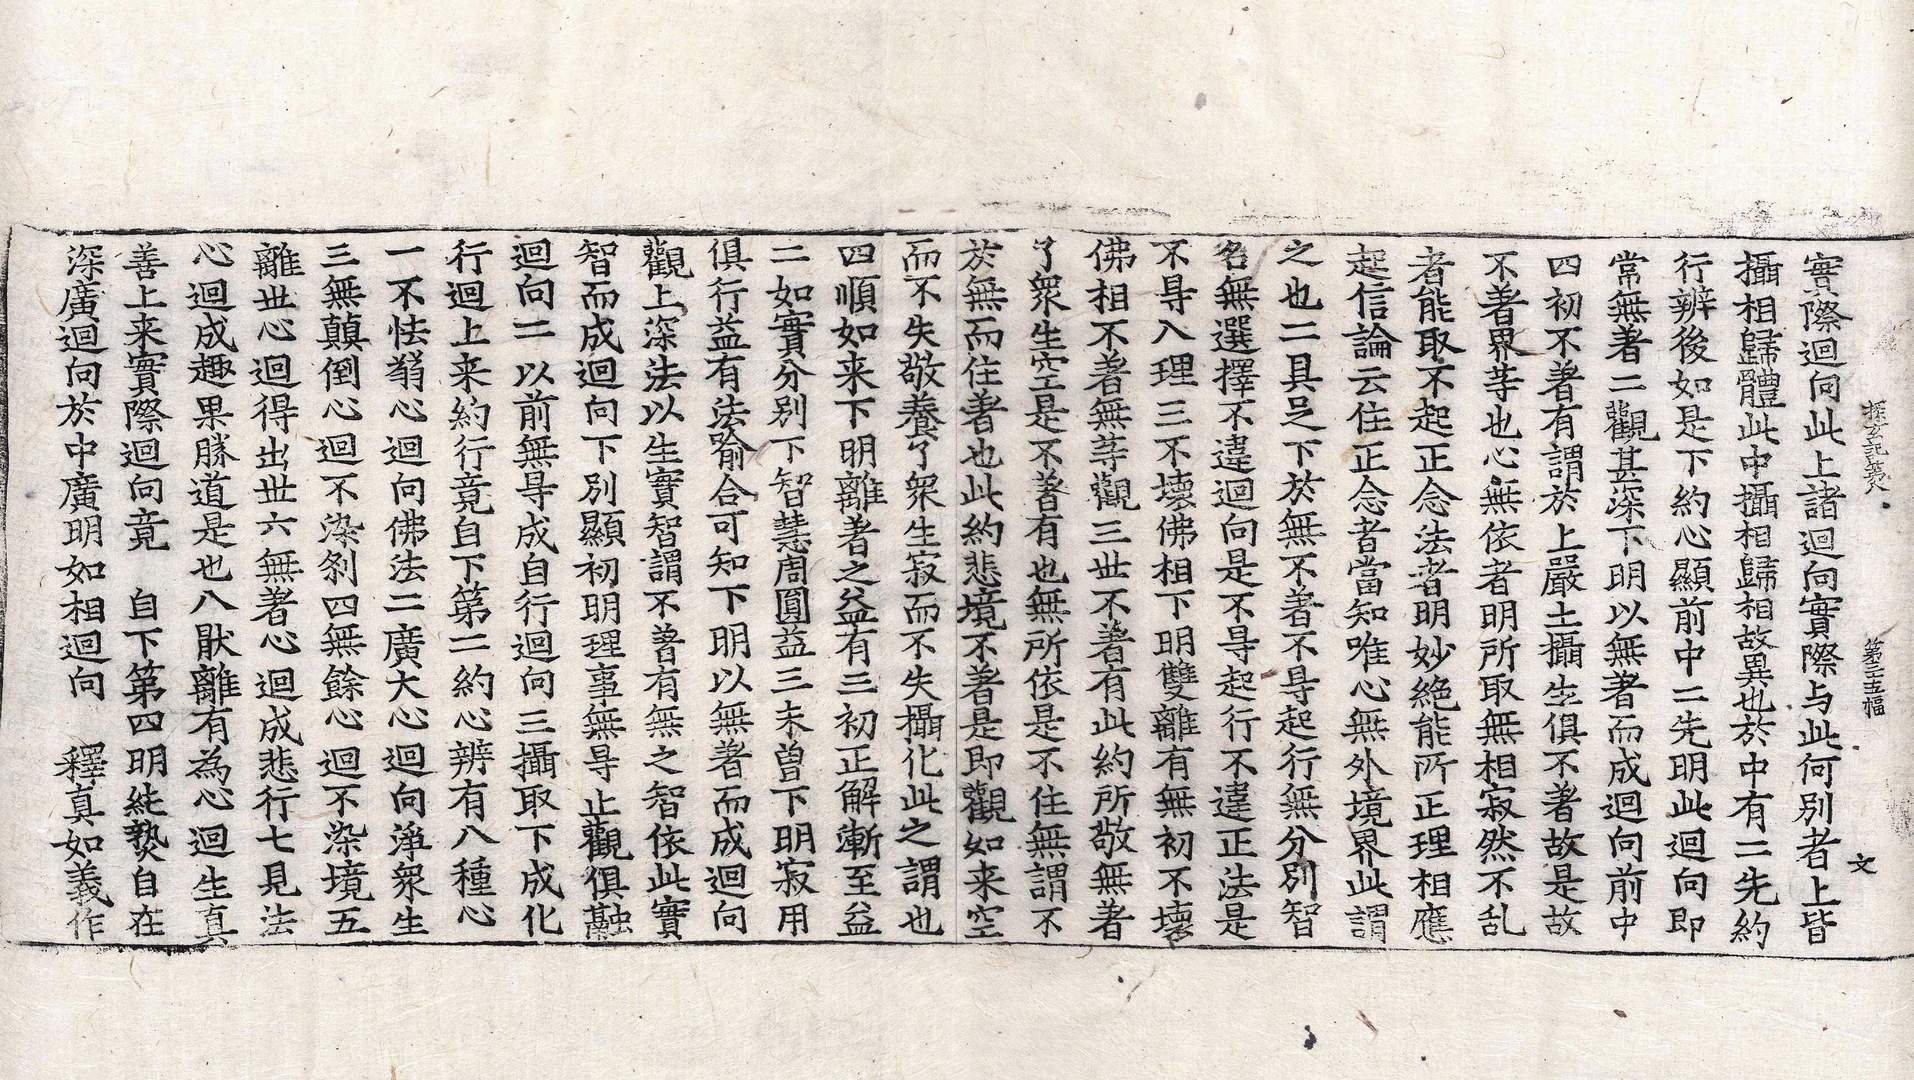 探玄記第八
第三十五幅
文
實際迴向此上諸迴向實際与此何別者上皆
攝相歸體此中攝相歸相故異也於中有二先約
行辨後如是下約心顯前中二先明此迴向即
常無著二觀甚深下明以無著而成迴向前中
四初不著有謂於上嚴土攝生俱不著故是故
不著界䓁也心無依者明所取無相寂然不乱
者能取不起正念法者明妙絶能所正理相應
起信論云住正念者當知唯心無外境界此謂
之也二具足下於無不著不㝵起行無分別智
名無選擇不違迴向是不㝵起行不違正法是
不㝵入理三不壞佛相下明雙離有無初不壞
佛相不著無䓁觀三世不著有此約所敬無著
了衆生空是不著有也無所依是不住無謂不
於無而住著也此約悲境不著是即觀如来空
而不失敬養了衆生寂而不失攝化此之謂也
四順如来下明離著之益有三初正解漸至益
二如實分別下智慧周圓益三未曽下明寂用
俱行益有法喻合可知下明以無著而成迴向
觀上深法以生實智謂不著有無之智依此實
智而成迴向下別顯初明理事無㝵止觀俱融
迴向二以前無㝵成自行迴向三攝取下成化
行迴上来約行竟自下第二約心辨有八種心
一不怯弱心迴向佛法二廣大心迴向淨衆生
三無顛倒心迴不染刹四無餘心迴不染境五
離世心迴得出世六無著心迴成悲行七見法
心迴成趣果勝道是也八猒離有為心迴生真
善上来實際迴向竟　自下第四明純熟自在
深廣迴向於中廣明如相迴向　釋真如義作